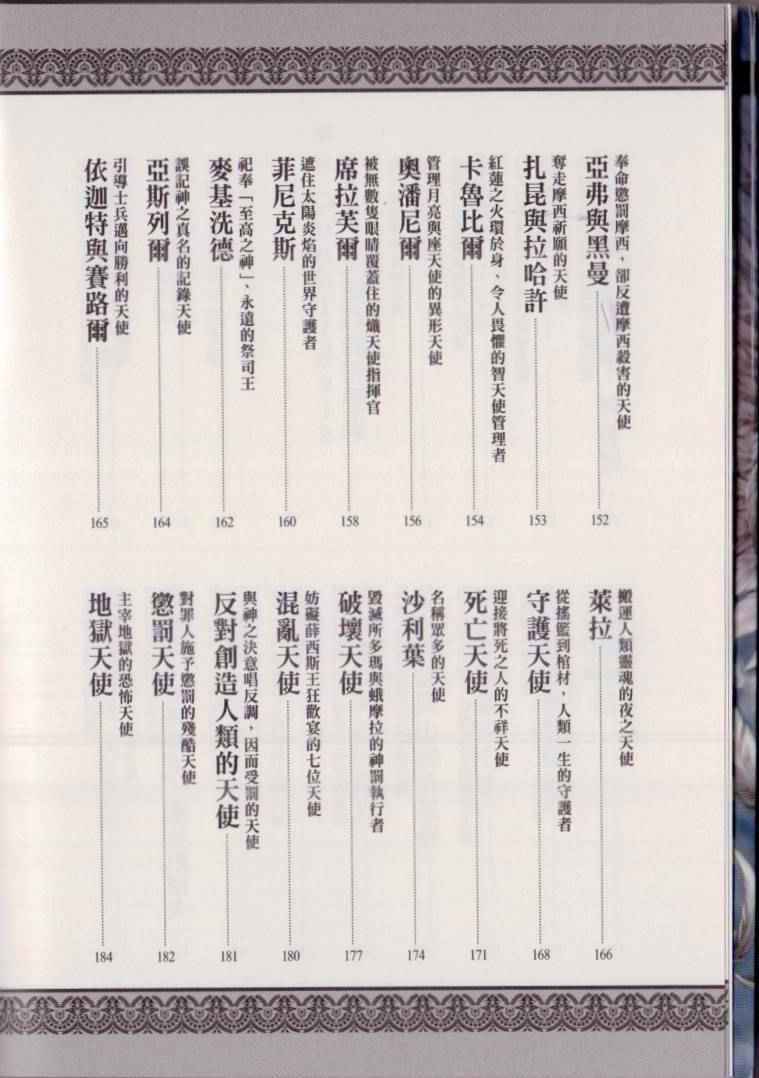 奉命懲罰摩西、卻反遭摩西殺害的天使
亞弗與黑曼
152
奪走摩西祈願的天使
扎昆與拉哈許
153
紅蓮之火環於身、令人畏懼的智天使管理者
卡魯比爾
154
管理月亮與座天使的異形天使
奧潘尼爾
156
被無數隻眼睛覆蓋住的熾天使指揮官
席拉芙爾
158
遮住太陽炎焰的世界守護者
菲尼克斯
160
祀奉「至高之神」、永遠的祭司王
麥基洗德
162
誤記神之真名的記錄天使
亞斯列爾
164
引導士兵邁向勝利的天使
依迦特與賽路爾
165
搬運人類靈魂的夜之天使
萊拉
166
從搖籃到棺材，人類一生的守護者
守護天使
168
迎接將死之人的不祥天使
死亡天使
171
名稱眾多的天使
沙利葉
174
毀滅所多瑪與蛾摩拉的神罰執行者
破壞天使
177
妨礙薛西斯王狂歡宴的七位天使
混亂天使
180
與神之決意唱反調，因而受罰的天使
反對創造人類的天使
181
對罪人施予懲罰的殘酷天使
懲罰天使
182
主宰地獄的恐怖天使
地獄天使
184